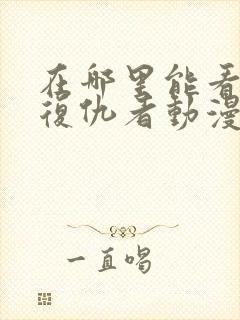 在那里能看
復仇者動漫
一直喝